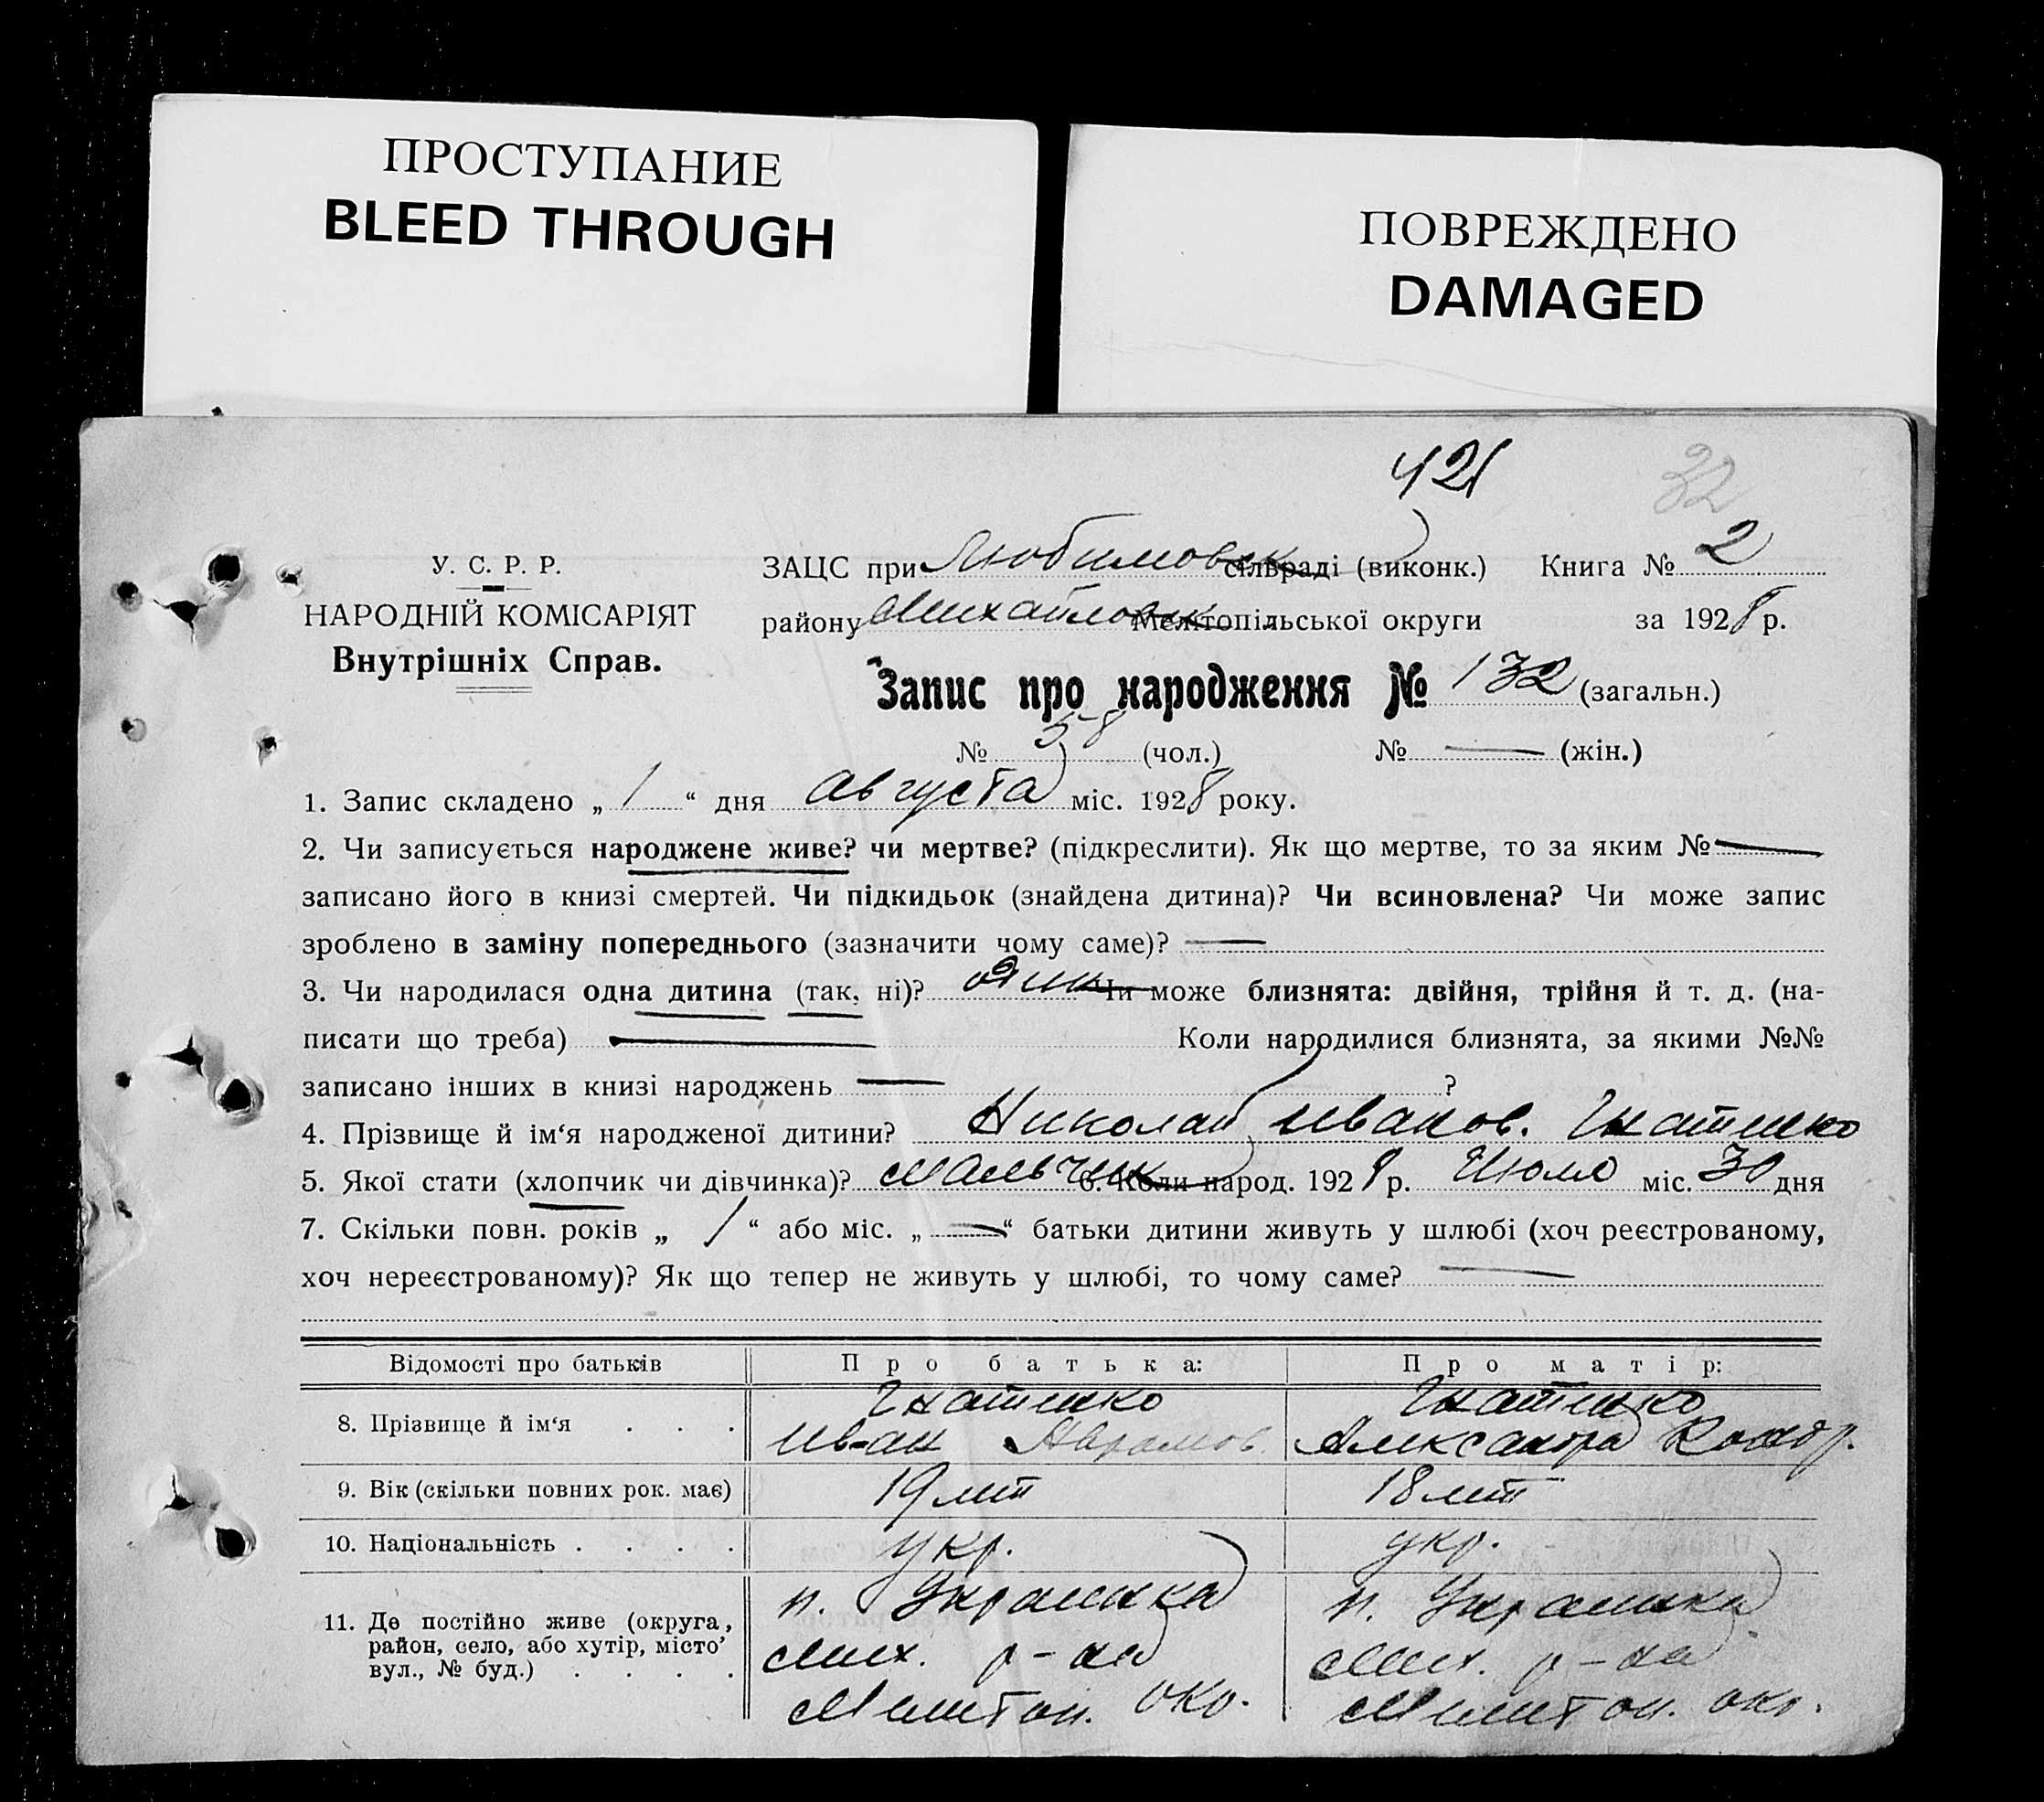 ПРОСТУПАНИЕ
BLEED THROUGH
ПОВРЕЖДЕНО
DAMAGED
421
32
У. С. Р. Р.
НАРОДНІЙ КОМІСАРІЯТ
Внутрішніх Справ.
ЗАЦС при Любимовск сільраді (виконк.) Книга № 2
району Михайловск Мелітопільської округи за 1928 р.
Запис про народження № 132 (загальн.)
№ 58 (чол.) № — (жін.)
1. Запис складено „ 1 “ дня августа міс. 1928 року.
2. Чи записується народжене живе? чи мертве? (підкреслити). Як що мертве, то за яким № —
записано його в книзі смертей. Чи підкидьок (знайдена дитина)? Чи всиновлена? Чи може запис
зроблено в заміну попереднього (зазначити чому саме)? —
3. Чи народилася одна дитина (так, ні)? один Чи може близнята: двійня, трійня й т. д. (на-
писати що треба) — Коли народилися близнята, за якими №№
записано інших в книзі народжень — ?
4. Прізвище й ім‘я народженої дитини? Николай Иванов. Гнатенко
5. Якої стати (хлопчик чи дівчинка)? мальчик 6. Коли народ. 1928 р. Июля міс. 30 дня
7. Скільки повн. років „ 1 “ або міс. „ — “ батьки дитини живуть у шлюбі (хоч реєстрованому,
хоч нереєстрованому)? Як що тепер не живуть у шлюбі, то чому саме? —
Відомості про батьків Про батька: Про матір:
8. Прізвище й ім‘я . . . Гнатенко Иван Аврамов. Гнатенко Александра Кондр.
9. Вік (скільки повних рок. має) 19 лет 18 лет
10. Національність . . . . укр. укр.
11. Де постійно живе (округа, п. Украинка п. Украинка
район, село, або хутір, місто’ Мих. р-на Мих. р-на
вул., № буд.) . . . . Мелитоп. окр. Мелитоп. окр.